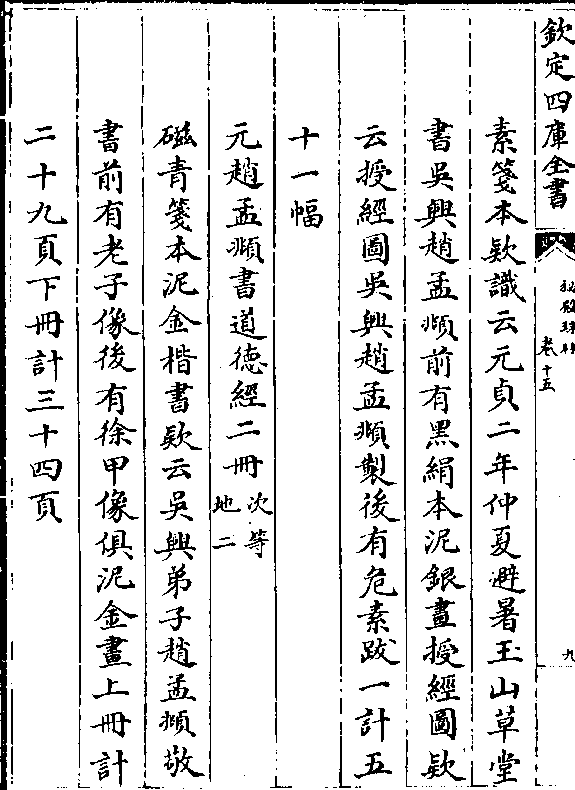 欽定四庫全書
秘殿珠林
卷十五
九
素箋本欵識云元貞二年仲夏避暑玉山草堂
書吳興趙孟頫前有黑絹本泥銀畫授經圖欵
云授經圖吳興趙孟頫製後有危素跋一計五
十一幅
元趙孟頫書道德經二冊次等地二
磁青箋本泥金楷書欵云吳興弟子趙孟頫敬
書前有老子像後有徐甲像俱泥金畫上冊計
二十九頁下冊計三十四頁